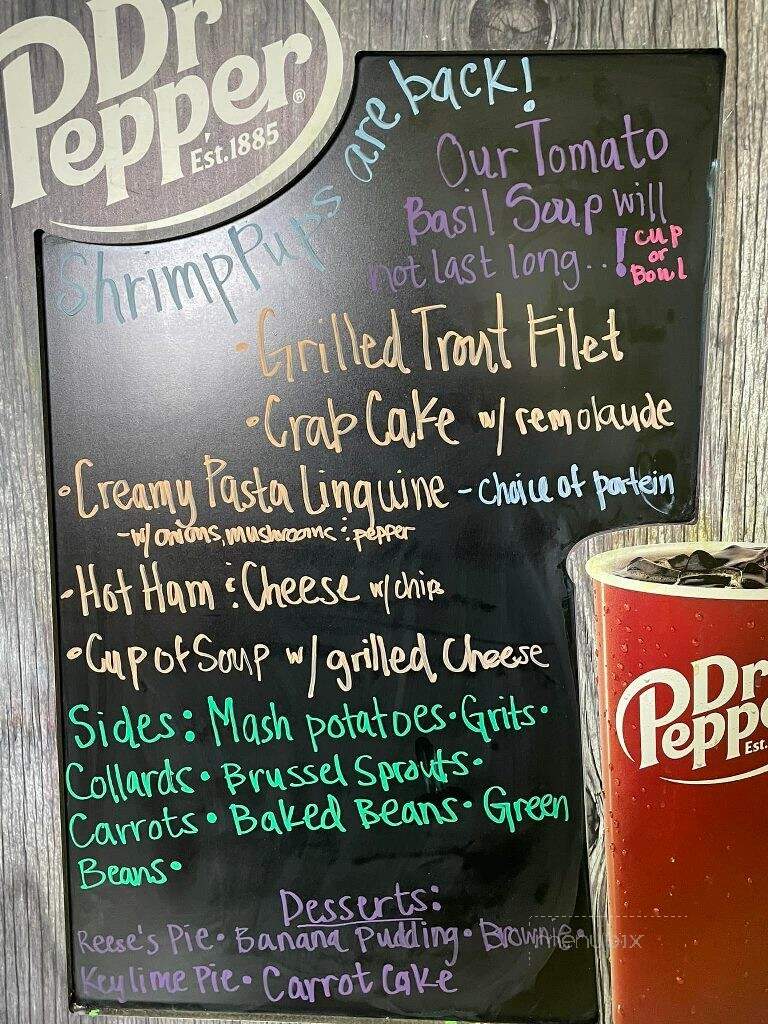 Dr
Pepper®
Est. 1885
Shrimp Pups are back!
Our Tomato
Basil Soup will
not last long..!
cup
or
Bowl
• Grilled Trout Filet
• Crab Cake w/ remolaude
• Creamy Pasta Linguine - choice of partein
- w/ onions, mushrooms & pepper
• Hot Ham & Cheese w/ chips
• Cup of Soup w/ grilled Cheese
Sides: Mash potatoes • Grits •
Collards • Brussel Sprouts •
Carrots • Baked Beans • Green
Beans •
Desserts:
Reese's Pie • Banana Pudding • Brownie •
Key lime Pie • Carrot Cake
menupix
Dr
Pepp
Est.